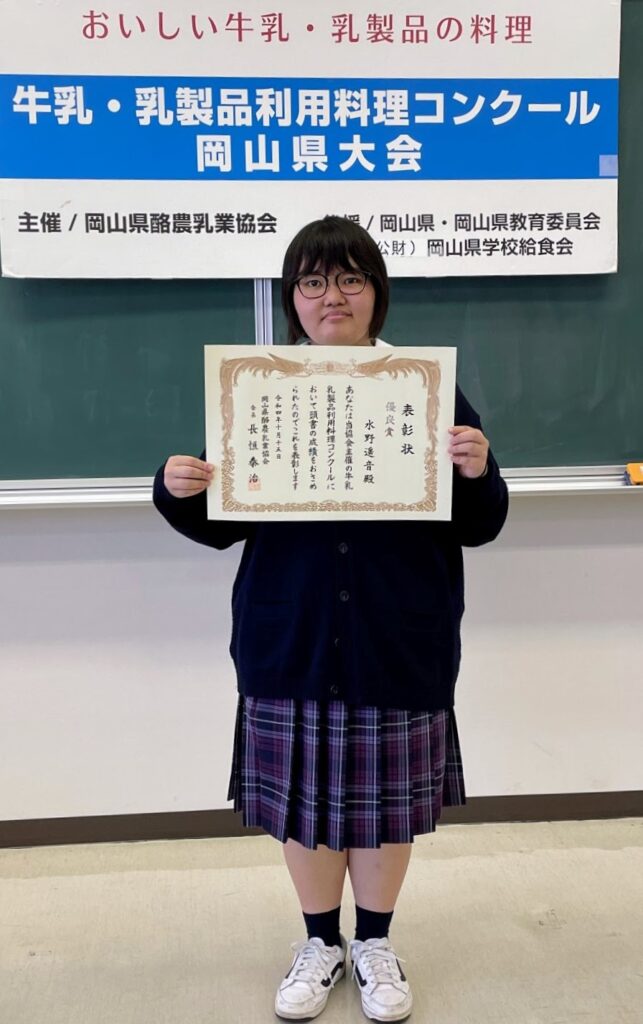 おいしい牛乳・乳製品の料理
牛乳・乳製品利用料理コンクール
岡山県大会
主催 / 岡山県酪農乳業協会
/ 岡山県・岡山県教育委員会
公財）岡山県学校給食会
表彰状
優良賞
水野遥音殿
あなたは当協会主催の牛乳
乳製品利用料理コンクールに
おいて頭書の成績をおさめ
られたのでこれを表彰します
令和四年十月十五日
岡山県酪農乳業協会
会長 長恒泰治